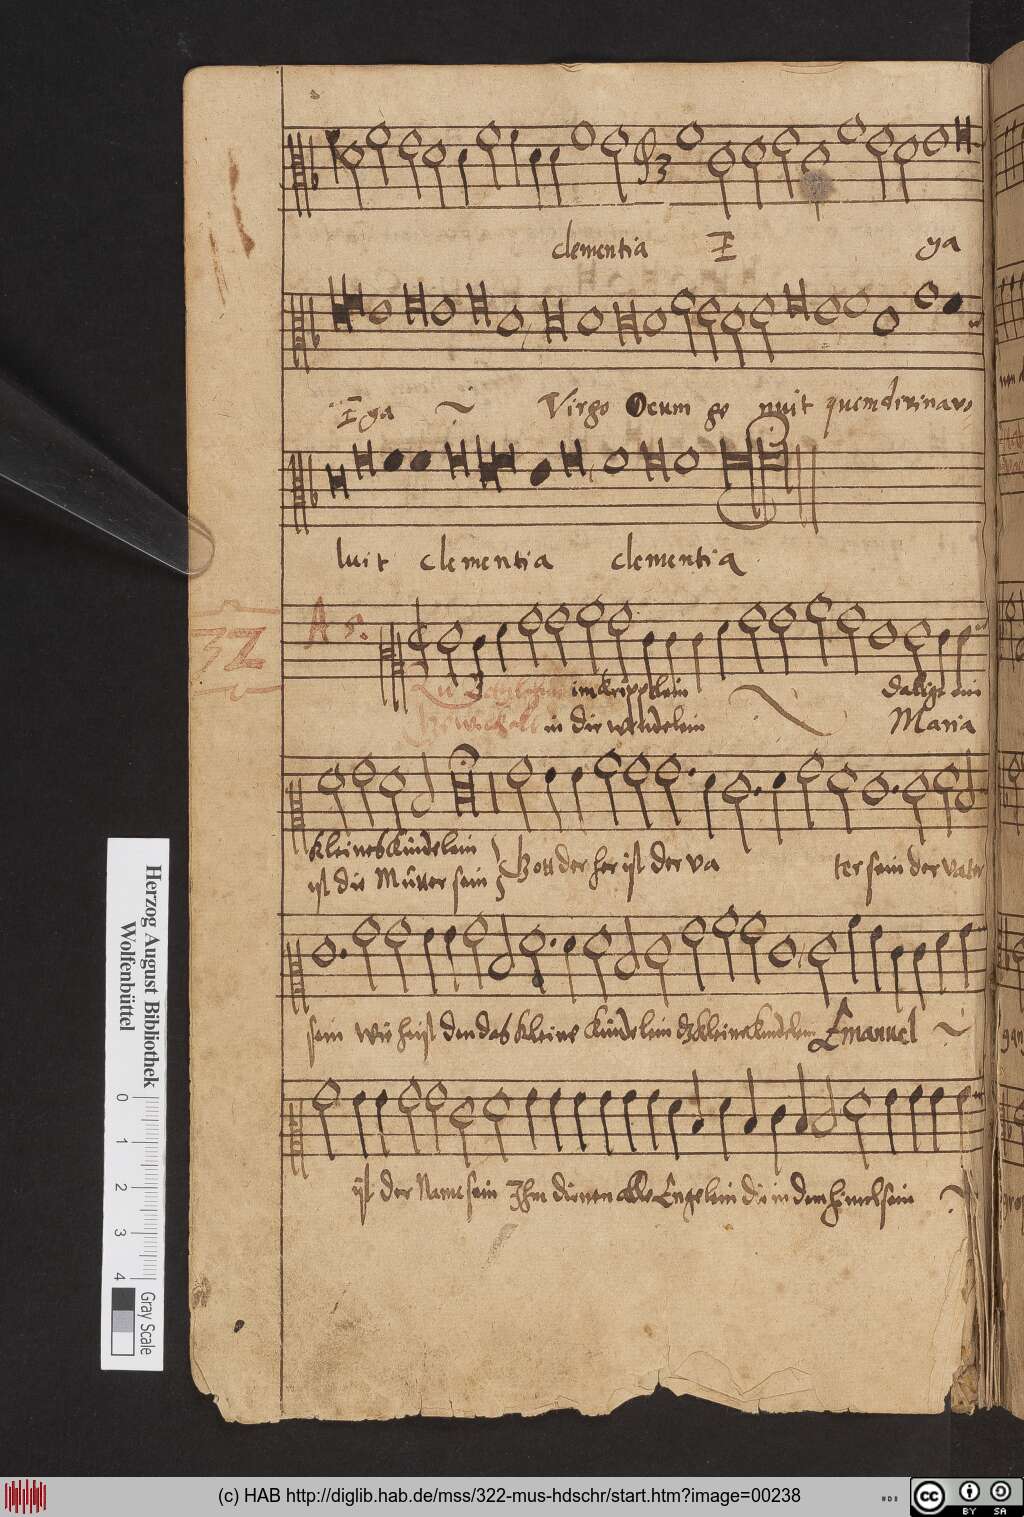 clementia E ya
Eya Virgo Deum ge nuit quem divina vo
luit clementia clementia
32 A 5.
Zu Bethlehem im krippelein da ligt ein
Gewickelt in die windelein Maria
kleines kindelein
ist die Mutter sein Gott der her ist der va ter sein der vater
sein wie heist den das kleine kindelein dz kleine kindelein Emanuel
ist der Name sein Ihm dienen alle Engelein die in dem himel sein
Herzog August Bibliothek
Wolfenbüttel
0 1 2 3 4 Gray Scale
(c) HAB http://diglib.hab.de/mss/322-mus-hdschr/start.htm?image=00238
cc BY SA